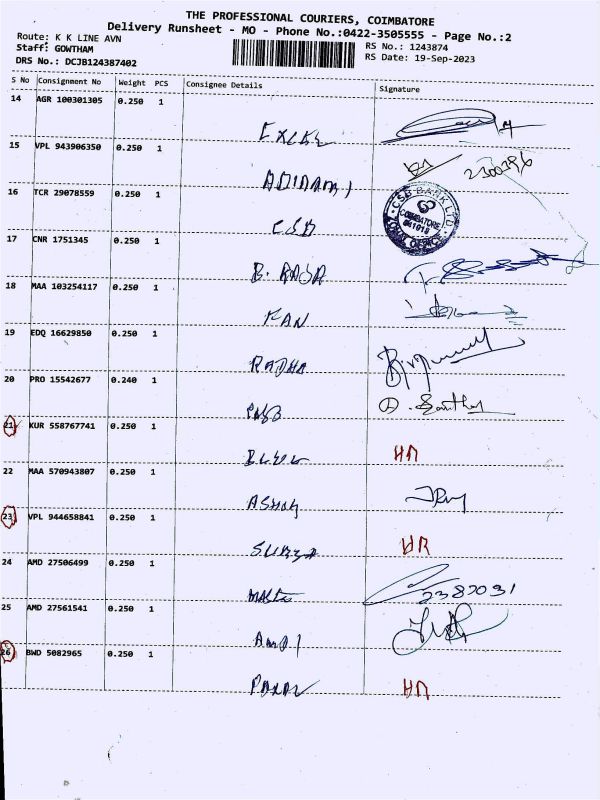 THE PROFESSIONAL COURIERS, COIMBATORE
Delivery Runsheet - MO - Phone No.:0422-3505555 - Page No.:2
Route: K K LINE AVN
RS No.: 1243874
Staff: GOWTHAM
RS Date: 19-Sep-2023
DRS No.: DCJB124387402
S No Consignment No Weight PCS Consignee Details Signature
14 AGR 100301305 0.250 1
EXCEL
15 VPL 943906350 0.250 1
2300396
16 TCR 29078559 0.250 1
CSB
CSB BANK LTD.
COIMBATORE
641018
17 CNR 1751345 0.250 1
B. RAJA
18 MAA 103254117 0.250 1
FAN
19 EDQ 16629850 0.250 1
RADHA
20 PRO 15542677 0.240 1
21 KUR 558767741 0.250 1
22 MAA 570943807 0.250 1
ASHOK
23 VPL 944658841 0.250 1
SURYA
24 AMD 27506499 0.250 1
2382031
25 AMD 27561541 0.250 1
26 BWD 5082965 0.250 1